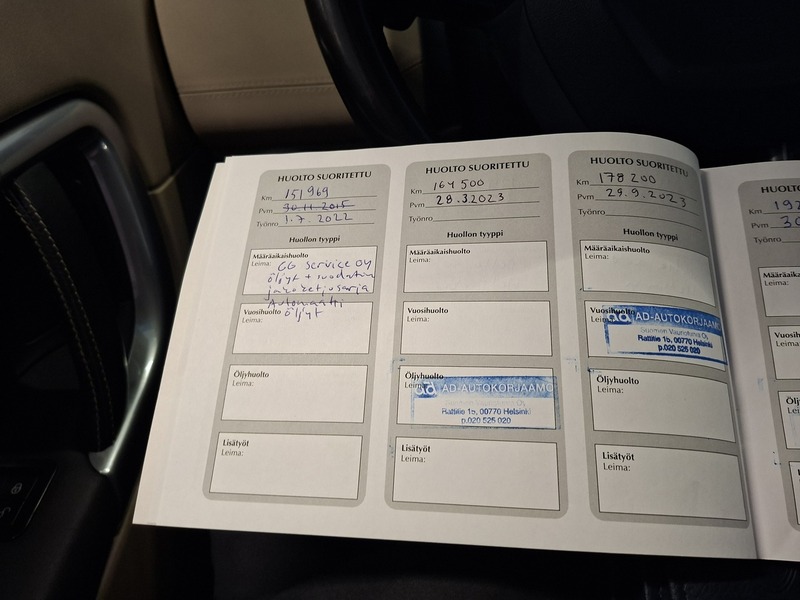 HUOLTO SUORITETTU
Km 151 969
Pvm 30.11.2015
Työnro 1.7.2022
Huollon tyyppi
Määräaikaishuolto
Leima: GG Service OY
öljyt + suodatin
jakoketjusarja
Automaatti
öljyt
Vuosihuolto
Leima:
Öljyhuolto
Leima:
Lisätyöt
Leima:
HUOLTO SUORITETTU
Km 164 500
Pvm 28.3.2023
Työnro
Huollon tyyppi
Määräaikaishuolto
Leima:
Vuosihuolto
Leima:
Öljyhuolto
Leima:
ad AD-AUTOKORJAAMO
Rattitie 1b, 00770 Helsinki
p.020 525 020
Lisätyöt
Leima:
HUOLTO SUORITETTU
Km 178 200
Pvm 29.9.2023
Työnro
Huollon tyyppi
Määräaikaishuolto
Leima:
Vuosihuolto
Leima:
ad AD-AUTOKORJAAMO
Suomen Vauriotarvis Oy
Rattitie 1b, 00770 Helsinki
p.020 525 020
Öljyhuolto
Leima:
Lisätyöt
Leima:
Km 19
Pvm 30
Työnro
Leima:
Leima:
Leima: